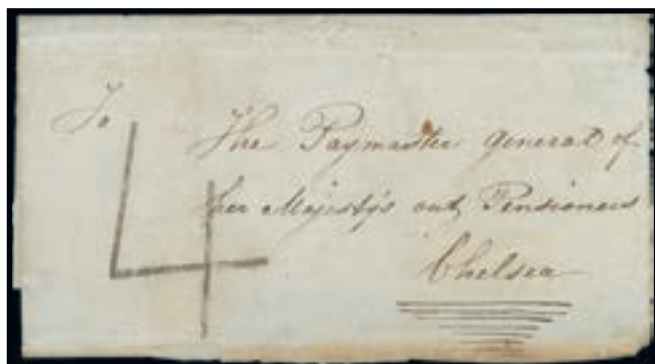 To
The Paymaster General of
her Majesty's out Pensioners
Chelsea
4